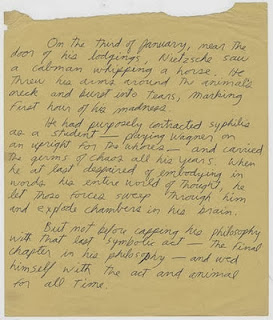 On the third of January, near the
door of his lodgings, Nietzsche saw
a cabman whipping a horse. He
threw his arms around the animal's
neck and burst into tears, marking
first hour of his madness.
He had purposely contracted syphilis
as a student — playing Wagner on
an upright for the whores — and carried
the germs of chaos all his years. When
he at last despaired of embodying in
words his entire world of thought, he
let those forces sweep through him
and explode chambers in his brain.
But not before capping his philosophy
with that last symbolic act — the final
chapter in his philosophy — and wed
himself with the act and animal
for all time.